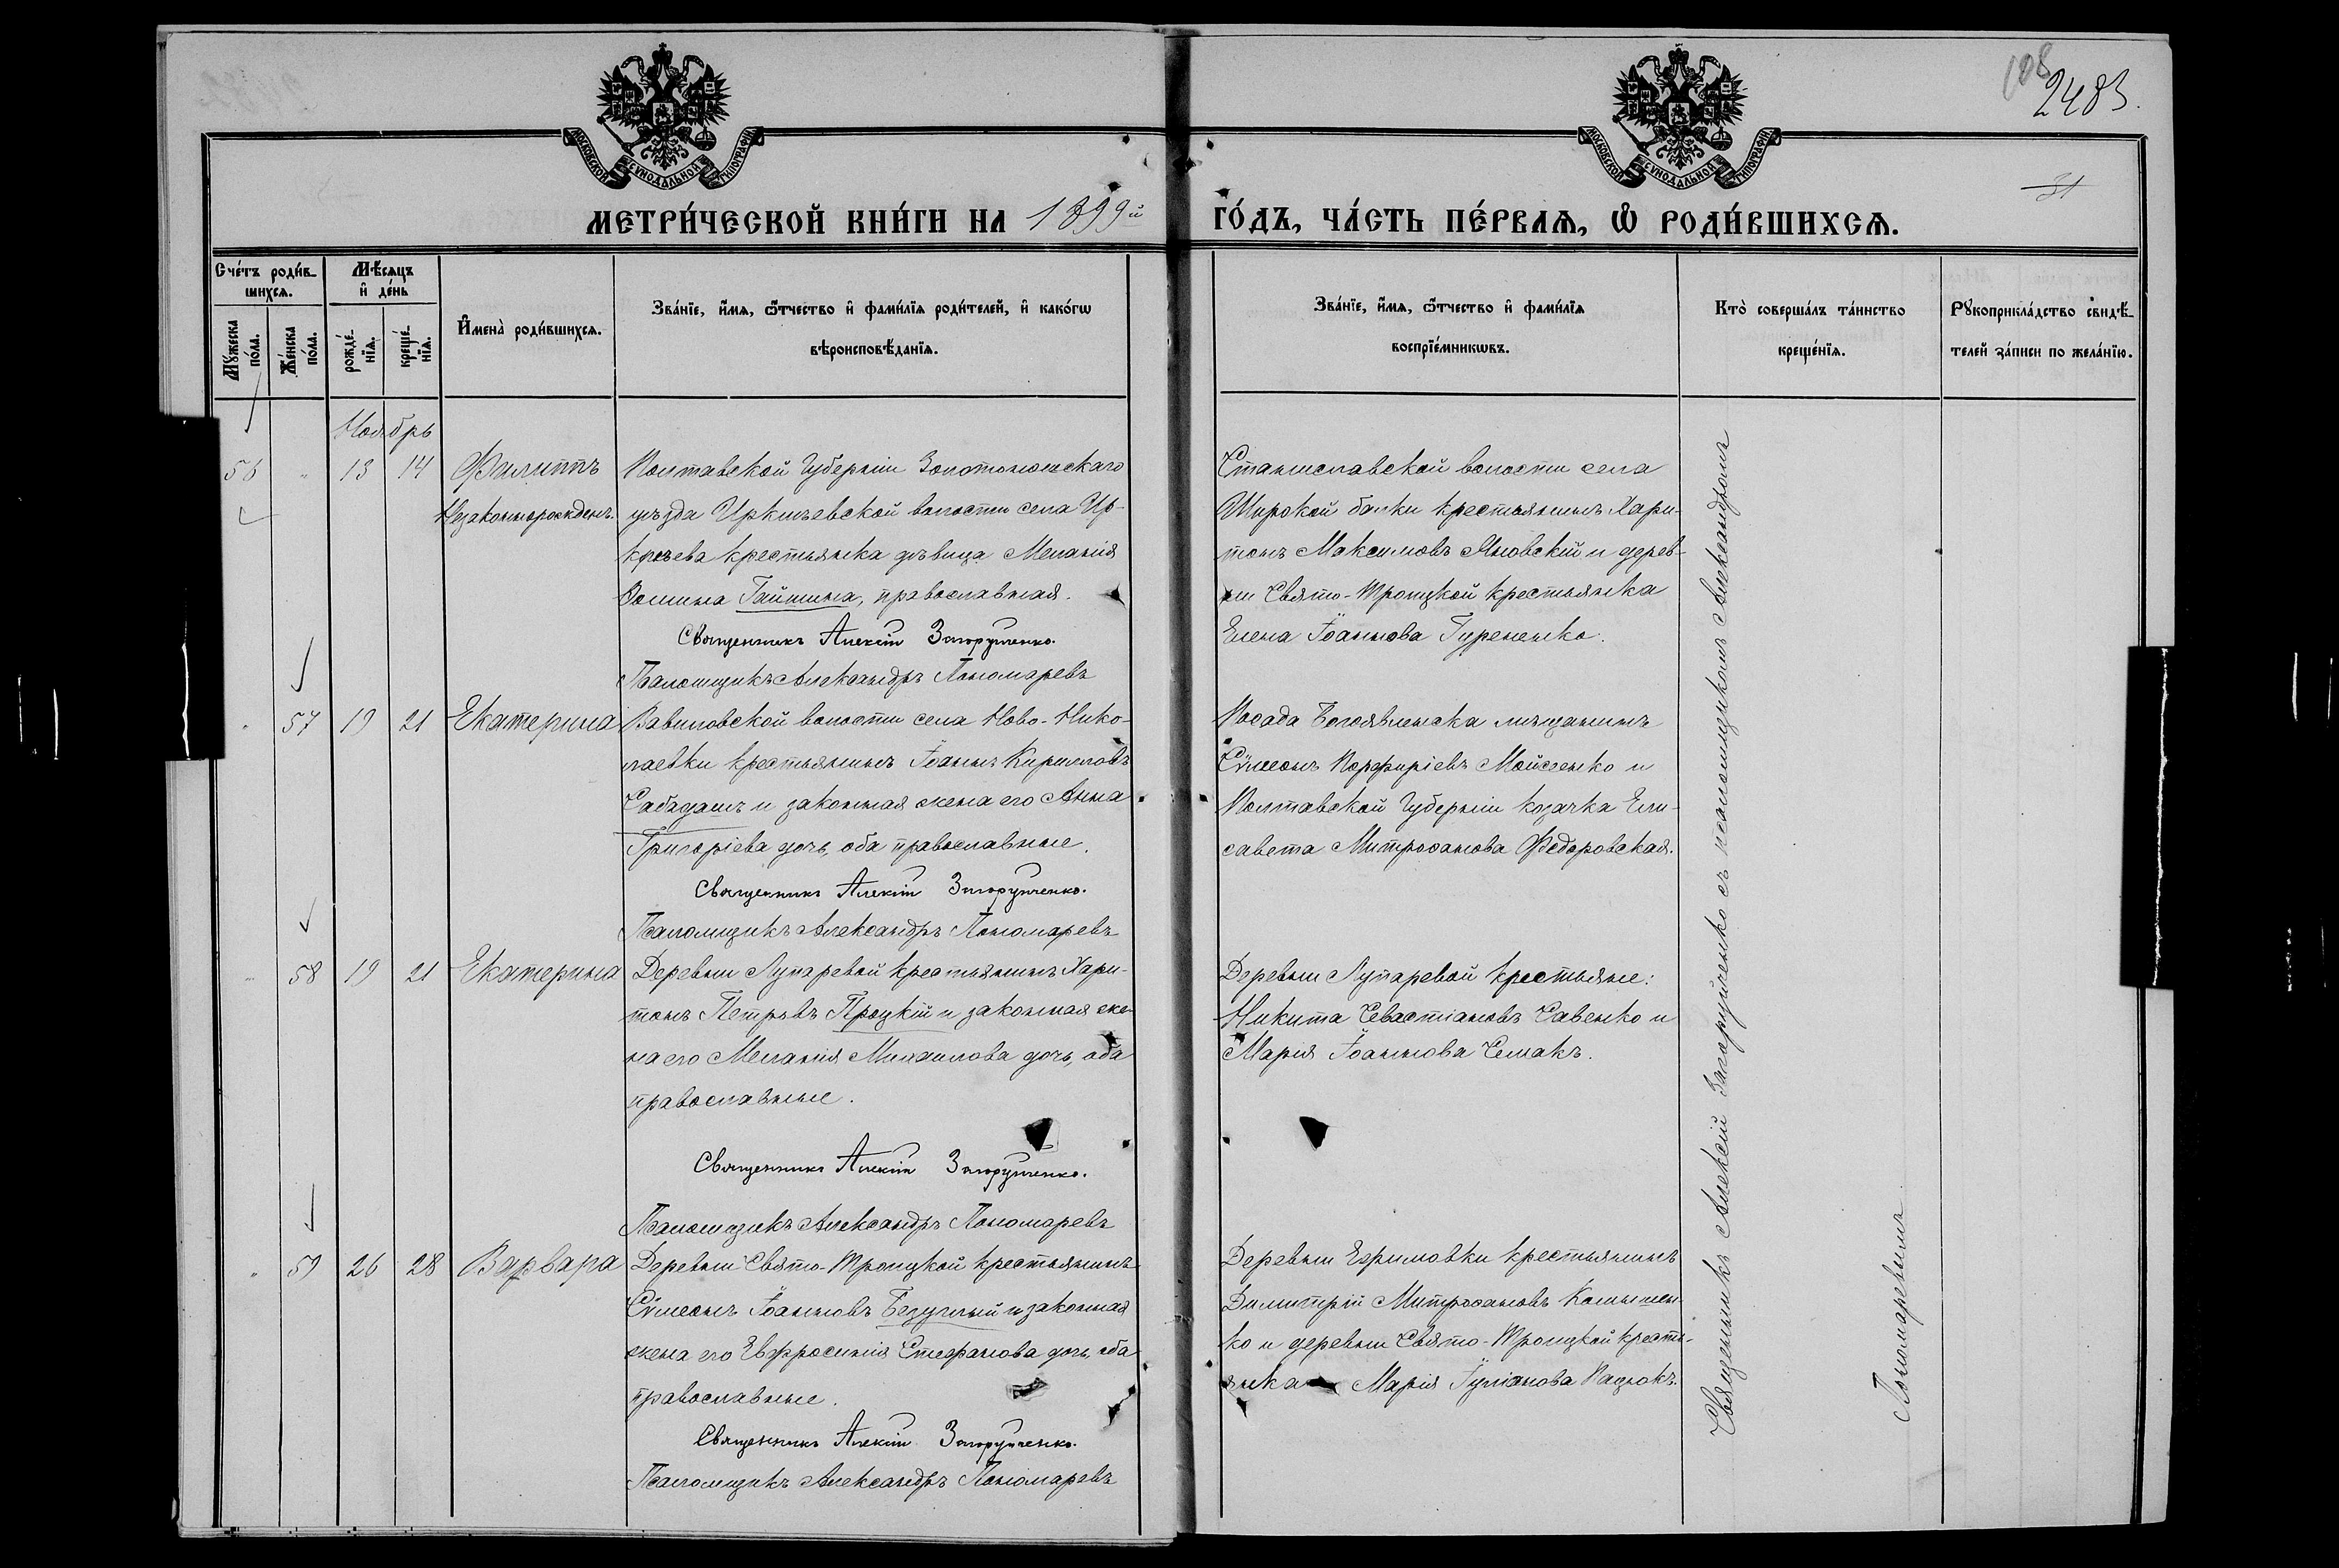 108
2483.
31
МОСКОВСКОЙ СѴНОДАЛЬНОЙ ТѴПОГРАФІИ
МОСКОВСКОЙ СѴНОДАЛЬНОЙ ТѴПОГРАФІИ
МЕТРИ́ЧЕСКОЙ КНИ́ГИ НА 1899й
ГО́ДЪ, ЧА́СТЬ ПЕ́РВАЯ, Ѿ РОДИ́ВШИХСЯ.
Сче́тъ роди́в-
шихся.
Мꙋ́жеска по́ла.
Же́нска по́ла.
Мѣ́сяцъ
и҆ де́нь
рожде́нїя.
креще́нїя.
И҆мена̀ роди́вшихся.
Зва́нїе, и҆́мя, ѻ҆́тчество и҆ фами́лїя роди́телей, и҆ како́гѡ
вѣроисповѣ́данїя.
Зва́нїе, и҆́мя, ѻ҆́тчество и҆ фами́лїя
воспрїе́мникѡвъ.
Кто̀ соверша́лъ та́инство
креще́нїя.
Рꙋкоприкла́дство свидѣ́-
телей за́писи по жела́нїю.
Ноябрь
56 " 13 14 Филиппъ
Незаконнорожден.
Полтавской Губерніи Золотоношскаго
уѣзда Иркліевской волости села Ир-
клѣева крестьянка дѣвица Меланія
Зосимова Гайшина, православная.
Священникъ Алексій Загоруйченко.
Псаломщикъ Александръ Пономаревъ
Станиславской волости села
Широкой балки крестьянинъ Хари-
тонъ Максимовъ Яновскій и дерев-
ни Свято-Троицкой крестьянка
Елена Іоаннова Гурененко.
" 57 19 21 Екатерина
Вавиловской волости села Ново-Нико-
лаевки крестьянинъ Іоаннъ Кирилловъ
Сабадашъ и законная жена его Анна
Григоріева дочь, оба православные.
Священникъ Алексій Загоруйченко.
Псаломщикъ Александръ Пономаревъ
Посада Богоявленска мѣщанинъ
Сѵмеонъ Порфиріевъ Мойсеенко и
Полтавской Губерніи козачка Ели-
савета Митрофанова Федоровская.
" 58 19 21 Екатерина
Деревни Лупаревой крестьянинъ Хари-
тонъ Петровъ Процкій и законная же-
на его Меланія Михаилова дочь, оба
православные.
Священникъ Алексій Загоруйченко.
Псаломщикъ Александръ Пономаревъ
Деревни Лупаревой крестьяне:
Никита Севастіановъ Савенко и
Марія Іоаннова Семакъ.
" 59 26 28 Варвара
Деревни Свято-Троицкой крестьянинъ
Сѵмеонъ Іоанновъ Безуглый и законная
жена его Евфросинія Стефанова дочь, оба
православные.
Священникъ Алексій Загоруйченко.
Псаломщикъ Александръ Пономаревъ
Деревни Ефимовки крестьянинъ
Димитрій Митрофановъ Камышен-
ко и деревни Свято-Троицкой кресть-
янка Марія Іуліанова Пацюкъ.
Священникъ Алексій Загоруйченко съ псаломщикомъ Александромъ
Пономаревымъ.